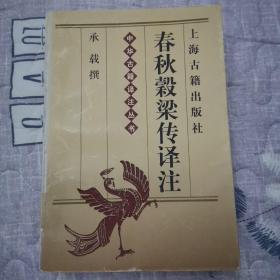 上海古籍出版社
春秋穀梁传译注
中华古籍译注丛书
承载撰